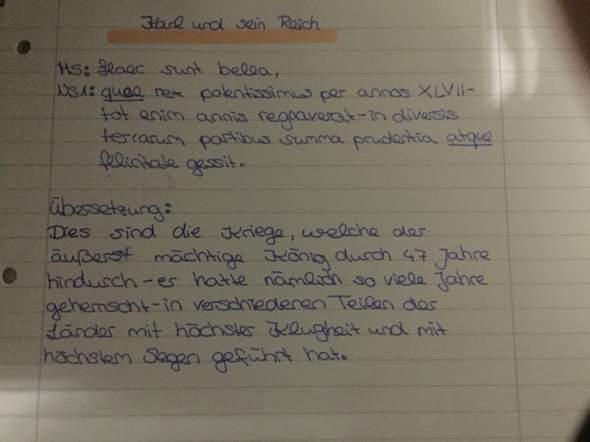 Karl und sein Reich
HS: Haec sunt bella,
NS1: quae rex potentissimus per annos XLVII-
tot enim annis regnaverat-in diversis
terrarum partibus summa prudentia atque
felicitate gessit.
Übersetzung:
Dies sind die Kriege, welche der
äußerst mächtige König durch 47 Jahre
hindurch-er hatte nämlich so viele Jahre
geherrscht-in verschiedenen Teilen des
Landes mit höchster Klugheit und mit
höchstem Segen geführt hat.